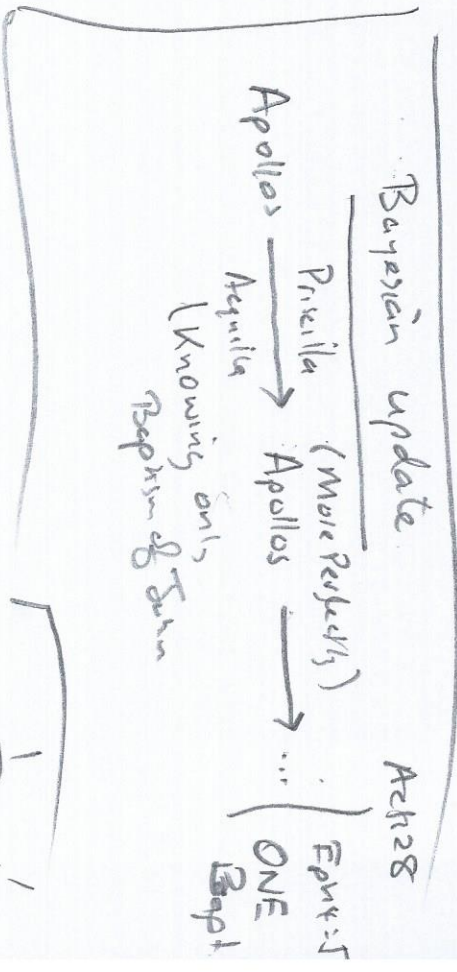 Bayesian update
Acts28
Priscilla
(More Perfectly)
Apollos → Apollos → ...
Acquilla
(Knowing only
Baptism of John
Eph4:5
ONE
Bapt